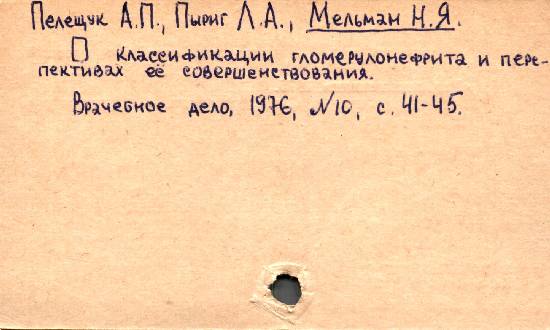 Пелещук А.П., Пыриг Л.А., Мельман Н.Я.
О классификации гломерулонефрита и перс-
пективах её совершенствования.
Врачебное дело, 1976, №10, с. 41-45.